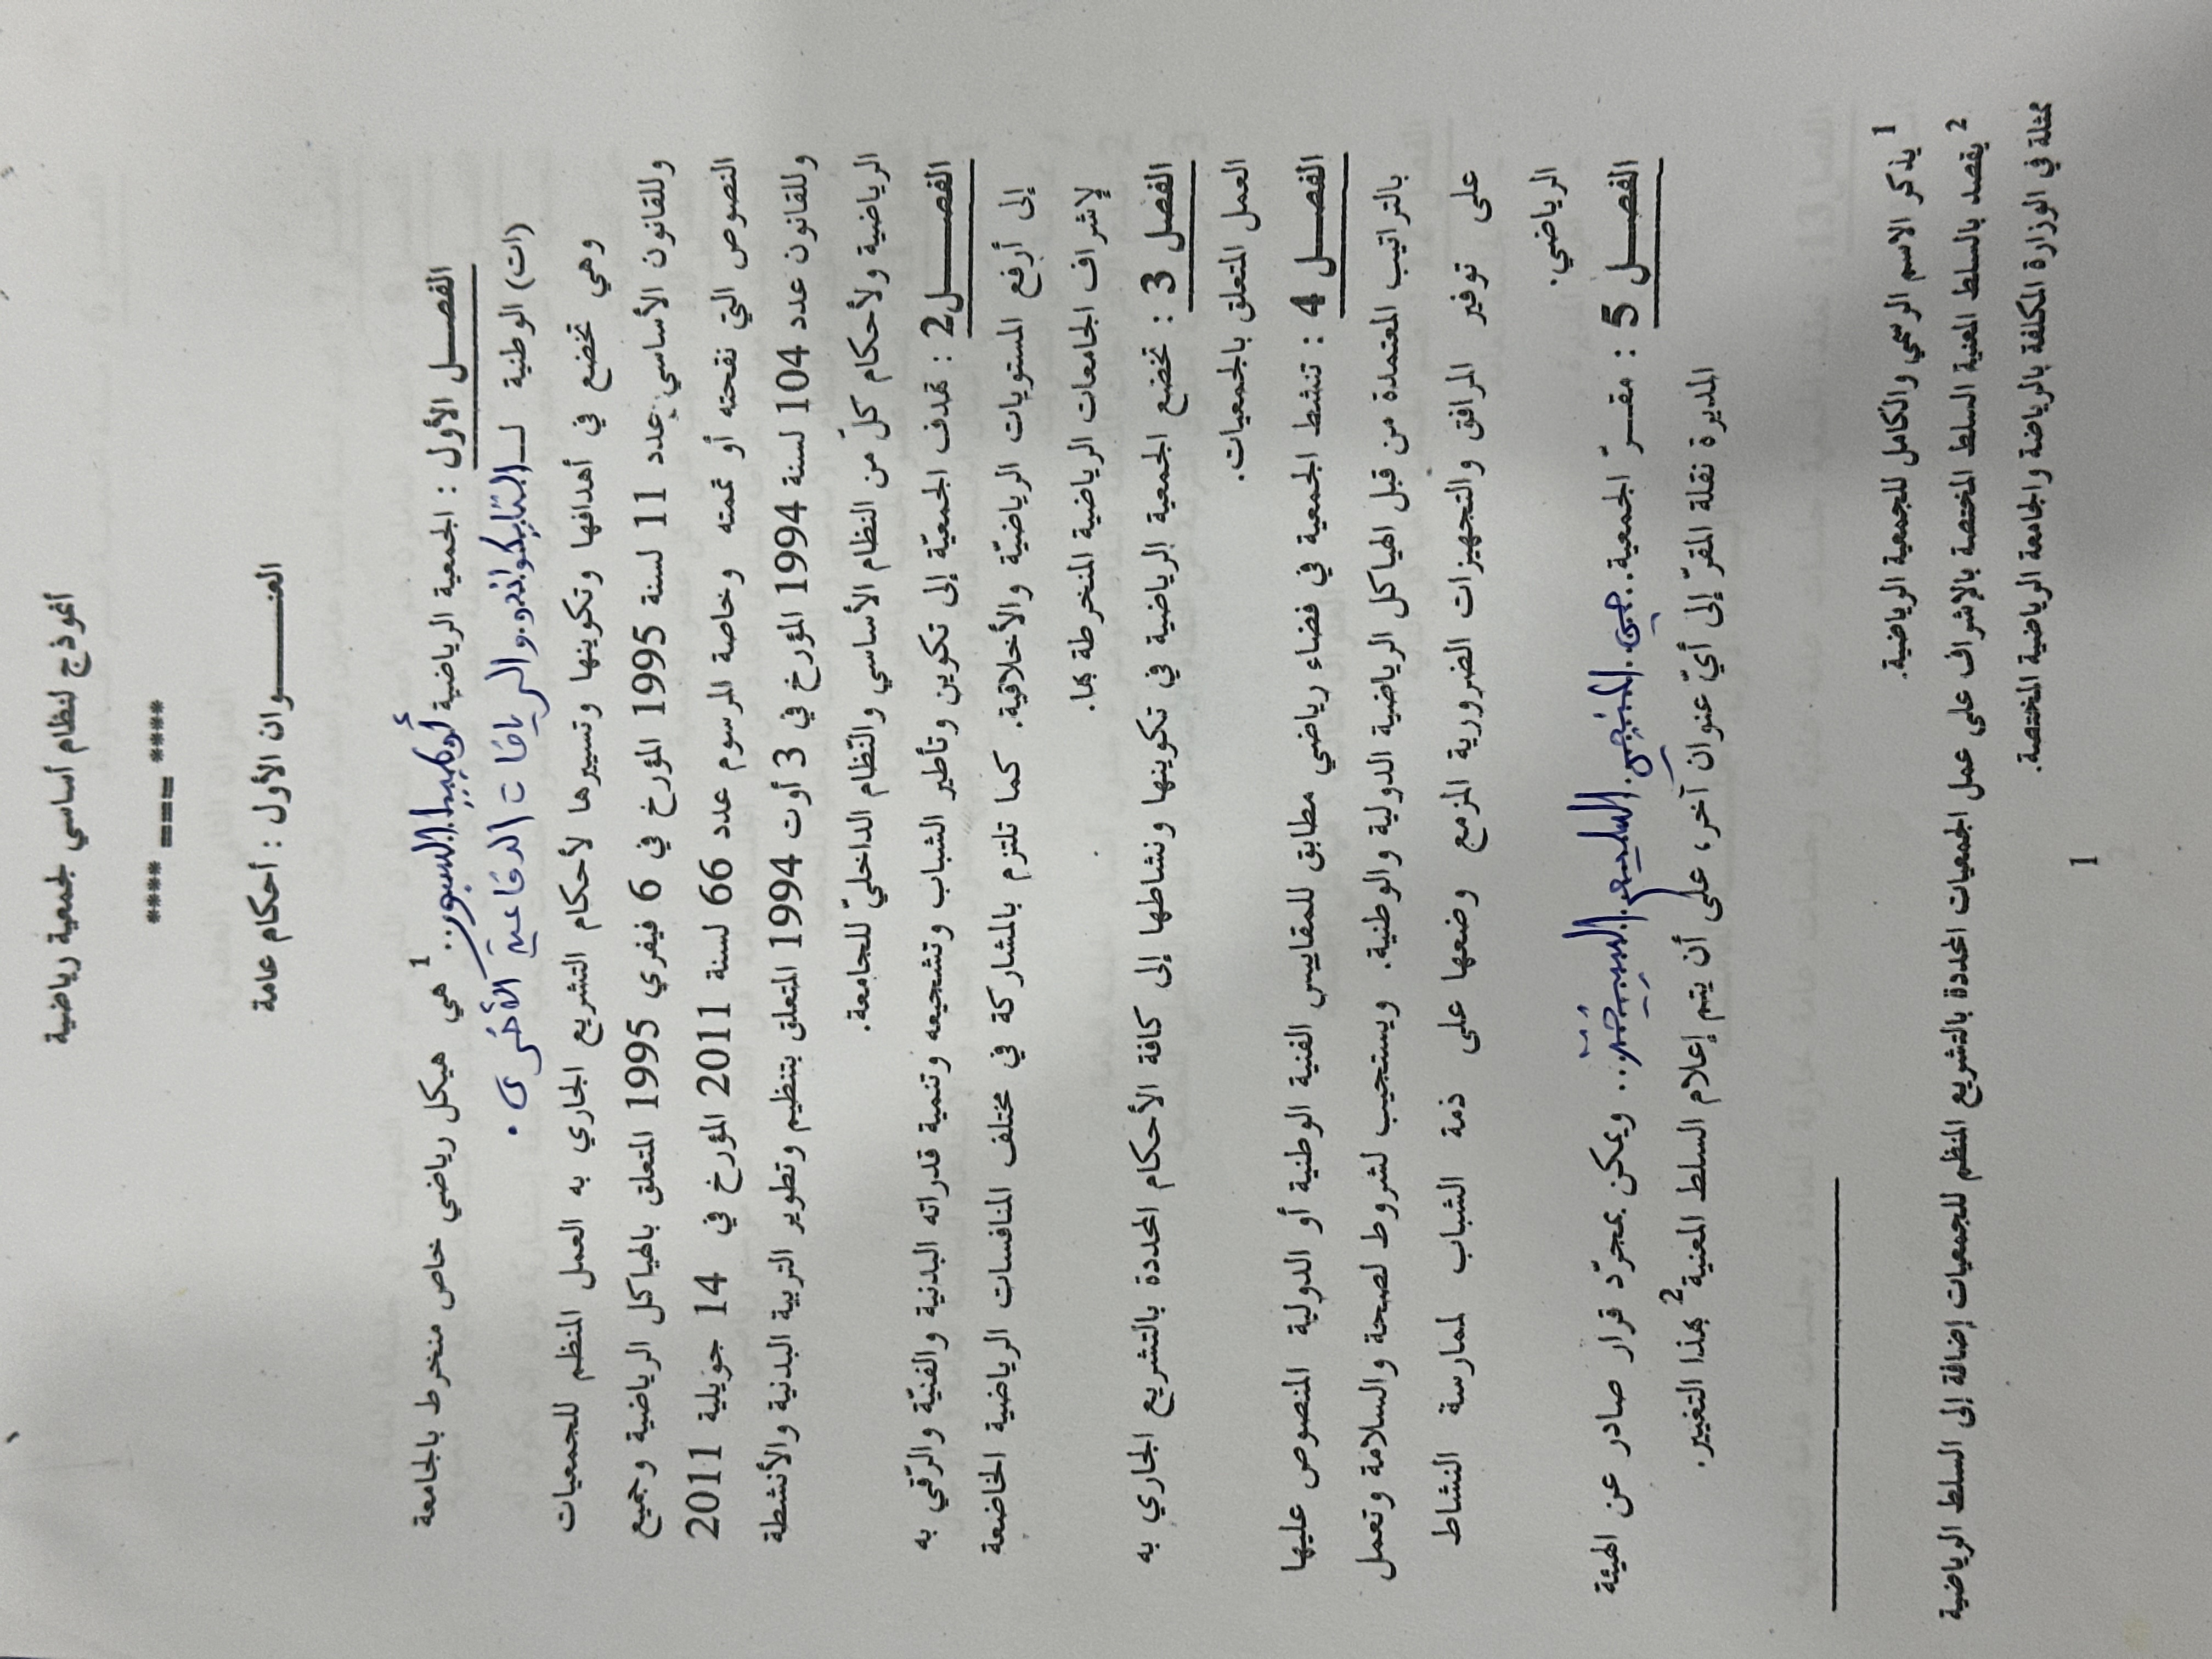 أنموذج لنظام أساسي لجمعية رياضية
**** === ****
العنـــــوان الأول : أحكام عامة
الفصـــل الأول : الجمعية الرياضية أولمبيا السبور.. 1 هي هيكل رياضي خاص منخرط بالجامعة
(ات) الوطنية لـ التايكواندو والرياضات الدفاعية الأخرى.
وهي تخضع في أهدافها وتكوينها وتسييرها لأحكام التشريع الجاري به العمل المنظم للجمعيات
وللقانون الأساسي عدد 11 لسنة 1995 المؤرخ في 6 فيفري 1995 المتعلق بالهياكل الرياضية وجميع
النصوص التي نقحته أو تممته وخاصة المرسوم عدد 66 لسنة 2011 المؤرخ في 14 جويلية 2011
وللقانون عدد 104 لسنة 1994 المؤرخ في 3 أوت 1994 المتعلق بتنظيم وتطوير التربية البدنية والأنشطة
الرياضية ولأحكام كلّ من النظام الأساسي والنّظام الداخليّ للجامعة.
الفصــــل2 : تهدف الجمعيّة إلى تكوين وتأطير الشباب وتشجيعه وتنمية قدراته البدنية والفنيّة والرّقي به
إلى أرفع المستويات الرياضيّة والأخلاقية. كما تلتزم بالمشاركة في مختلف المنافسات الرياضية الخاضعة
لإشراف الجامعات الرياضية المنخرطة بها.
الفصل 3 : تخضع الجمعية الرياضية في تكوينها ونشاطها إلى كافة الأحكام المحددة بالتشريع الجاري به
العمل المتعلق بالجمعيات.
الفصـــل 4 : تنشط الجمعية في فضاء رياضي مطابق للمقاييس الفنية الوطنية أو الدولية المنصوص عليها
بالتراتيب المعتمدة من قبل الهياكل الرياضية الدولية والوطنية. ويستجيب لشروط لصحة والسلامة وتعمل
على توفير المرافق والتجهيزات الضرورية المزمع وضعها على ذمة الشباب لممارسة النشاط
الرياضي.
الفصـــل 5 : مقـــرّ الجمعية. حي ... ويمكن بمجرّد قرار صادر عن الهيئة
المديرة نقلة المقرّ إلى أيّ عنوان آخر، على أن يتم إعلام السلط المعنية2 بهذا التغيير.
1 يذكر الاسم الرسمي والكامل للجمعية الرياضية.
2 يقصد بالسلط المعنية السلط المختصة بالإشراف على عمل الجمعيات المحددة بالتشريع المنظم للجمعيات إضافة إلى السلط الرياضية
ممثلة في الوزارة المكلفة بالرياضة والجامعة الرياضية المختصة.
1